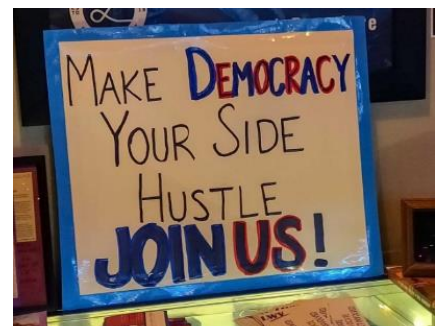 MAKE DEMOCRACY
YOUR SIDE
HUSTLE
JOIN US!